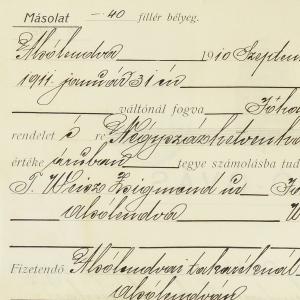 Másolat —·40 fillér bélyeg.
Alsólendva 1910 Szeptem
1911. január 31 én
váltónál fogva Jóha
rendelet é re Négyszázhetvenha
értéke áruban tegye számolásba tud
T. Weisz Zsigmond úr
Alsólendva W
Fizetendő Alsólendvai takaréknál
Alsólendván